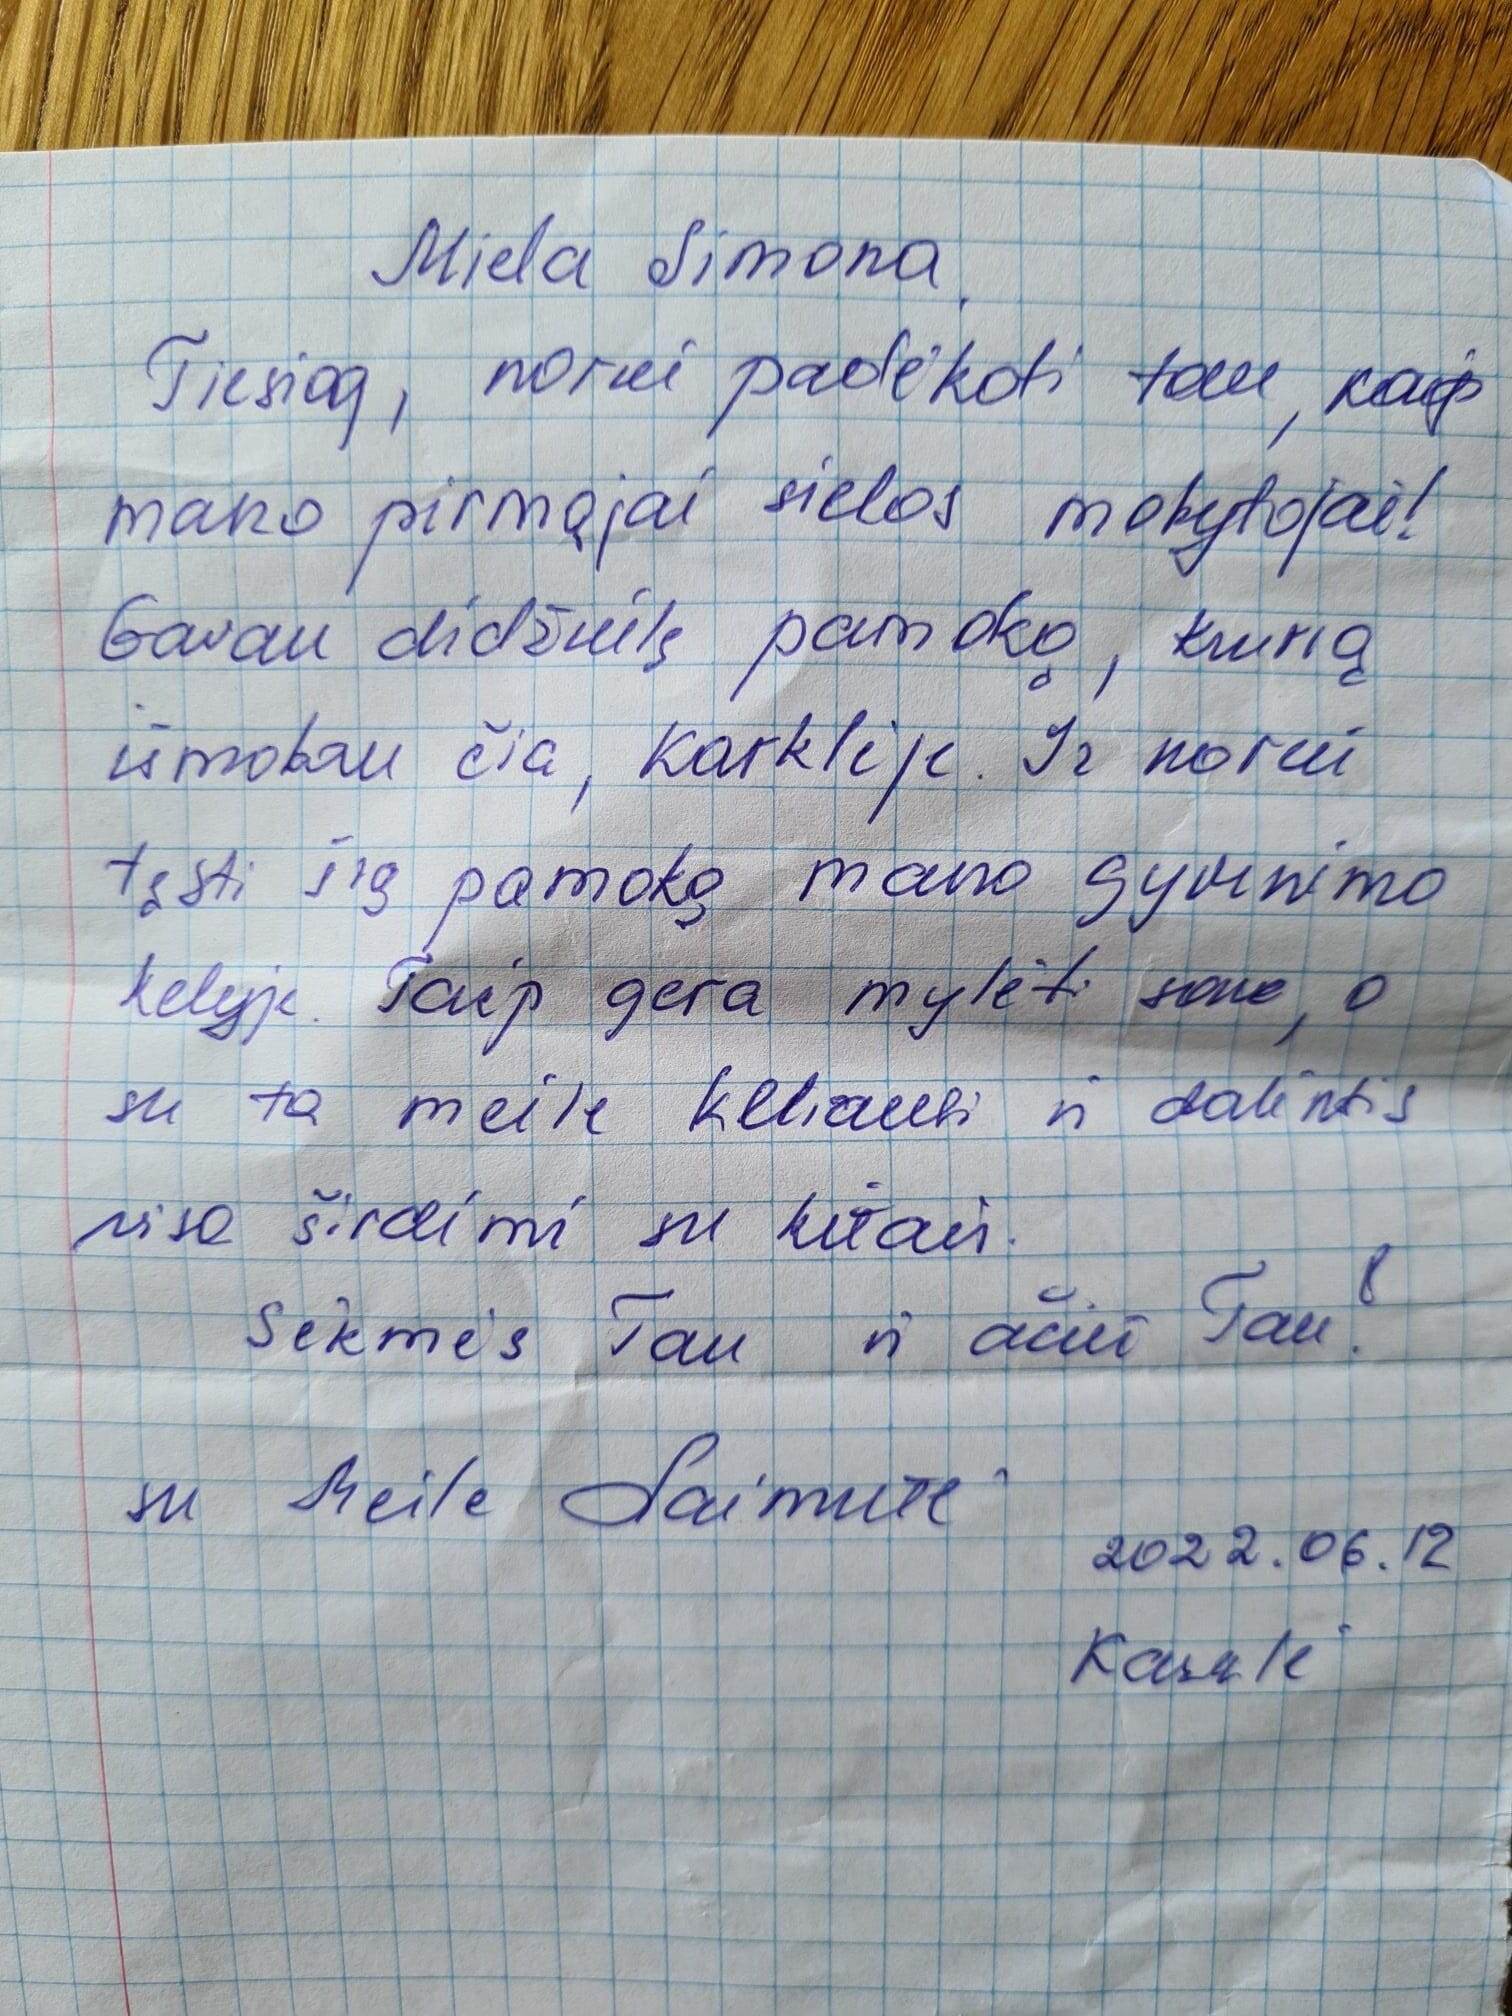 Miela Simona,
Tiesiog, noriu padėkoti tau, kaip
mano pirmąjai sielos mokytojai!
Gavau didžiulę pamoką, kurią
išmokau čia, Karklėje. Ir noriu
tęsti šią pamoką mano gyvenimo
kelyje. Taip gera mylėti save, o
su ta meile keliauti ir dalintis
visa širdimi su kitais.
Sėkmės Tau ir ačiū Tau!
su Meile Laimutė
2022.06.12
Karklė